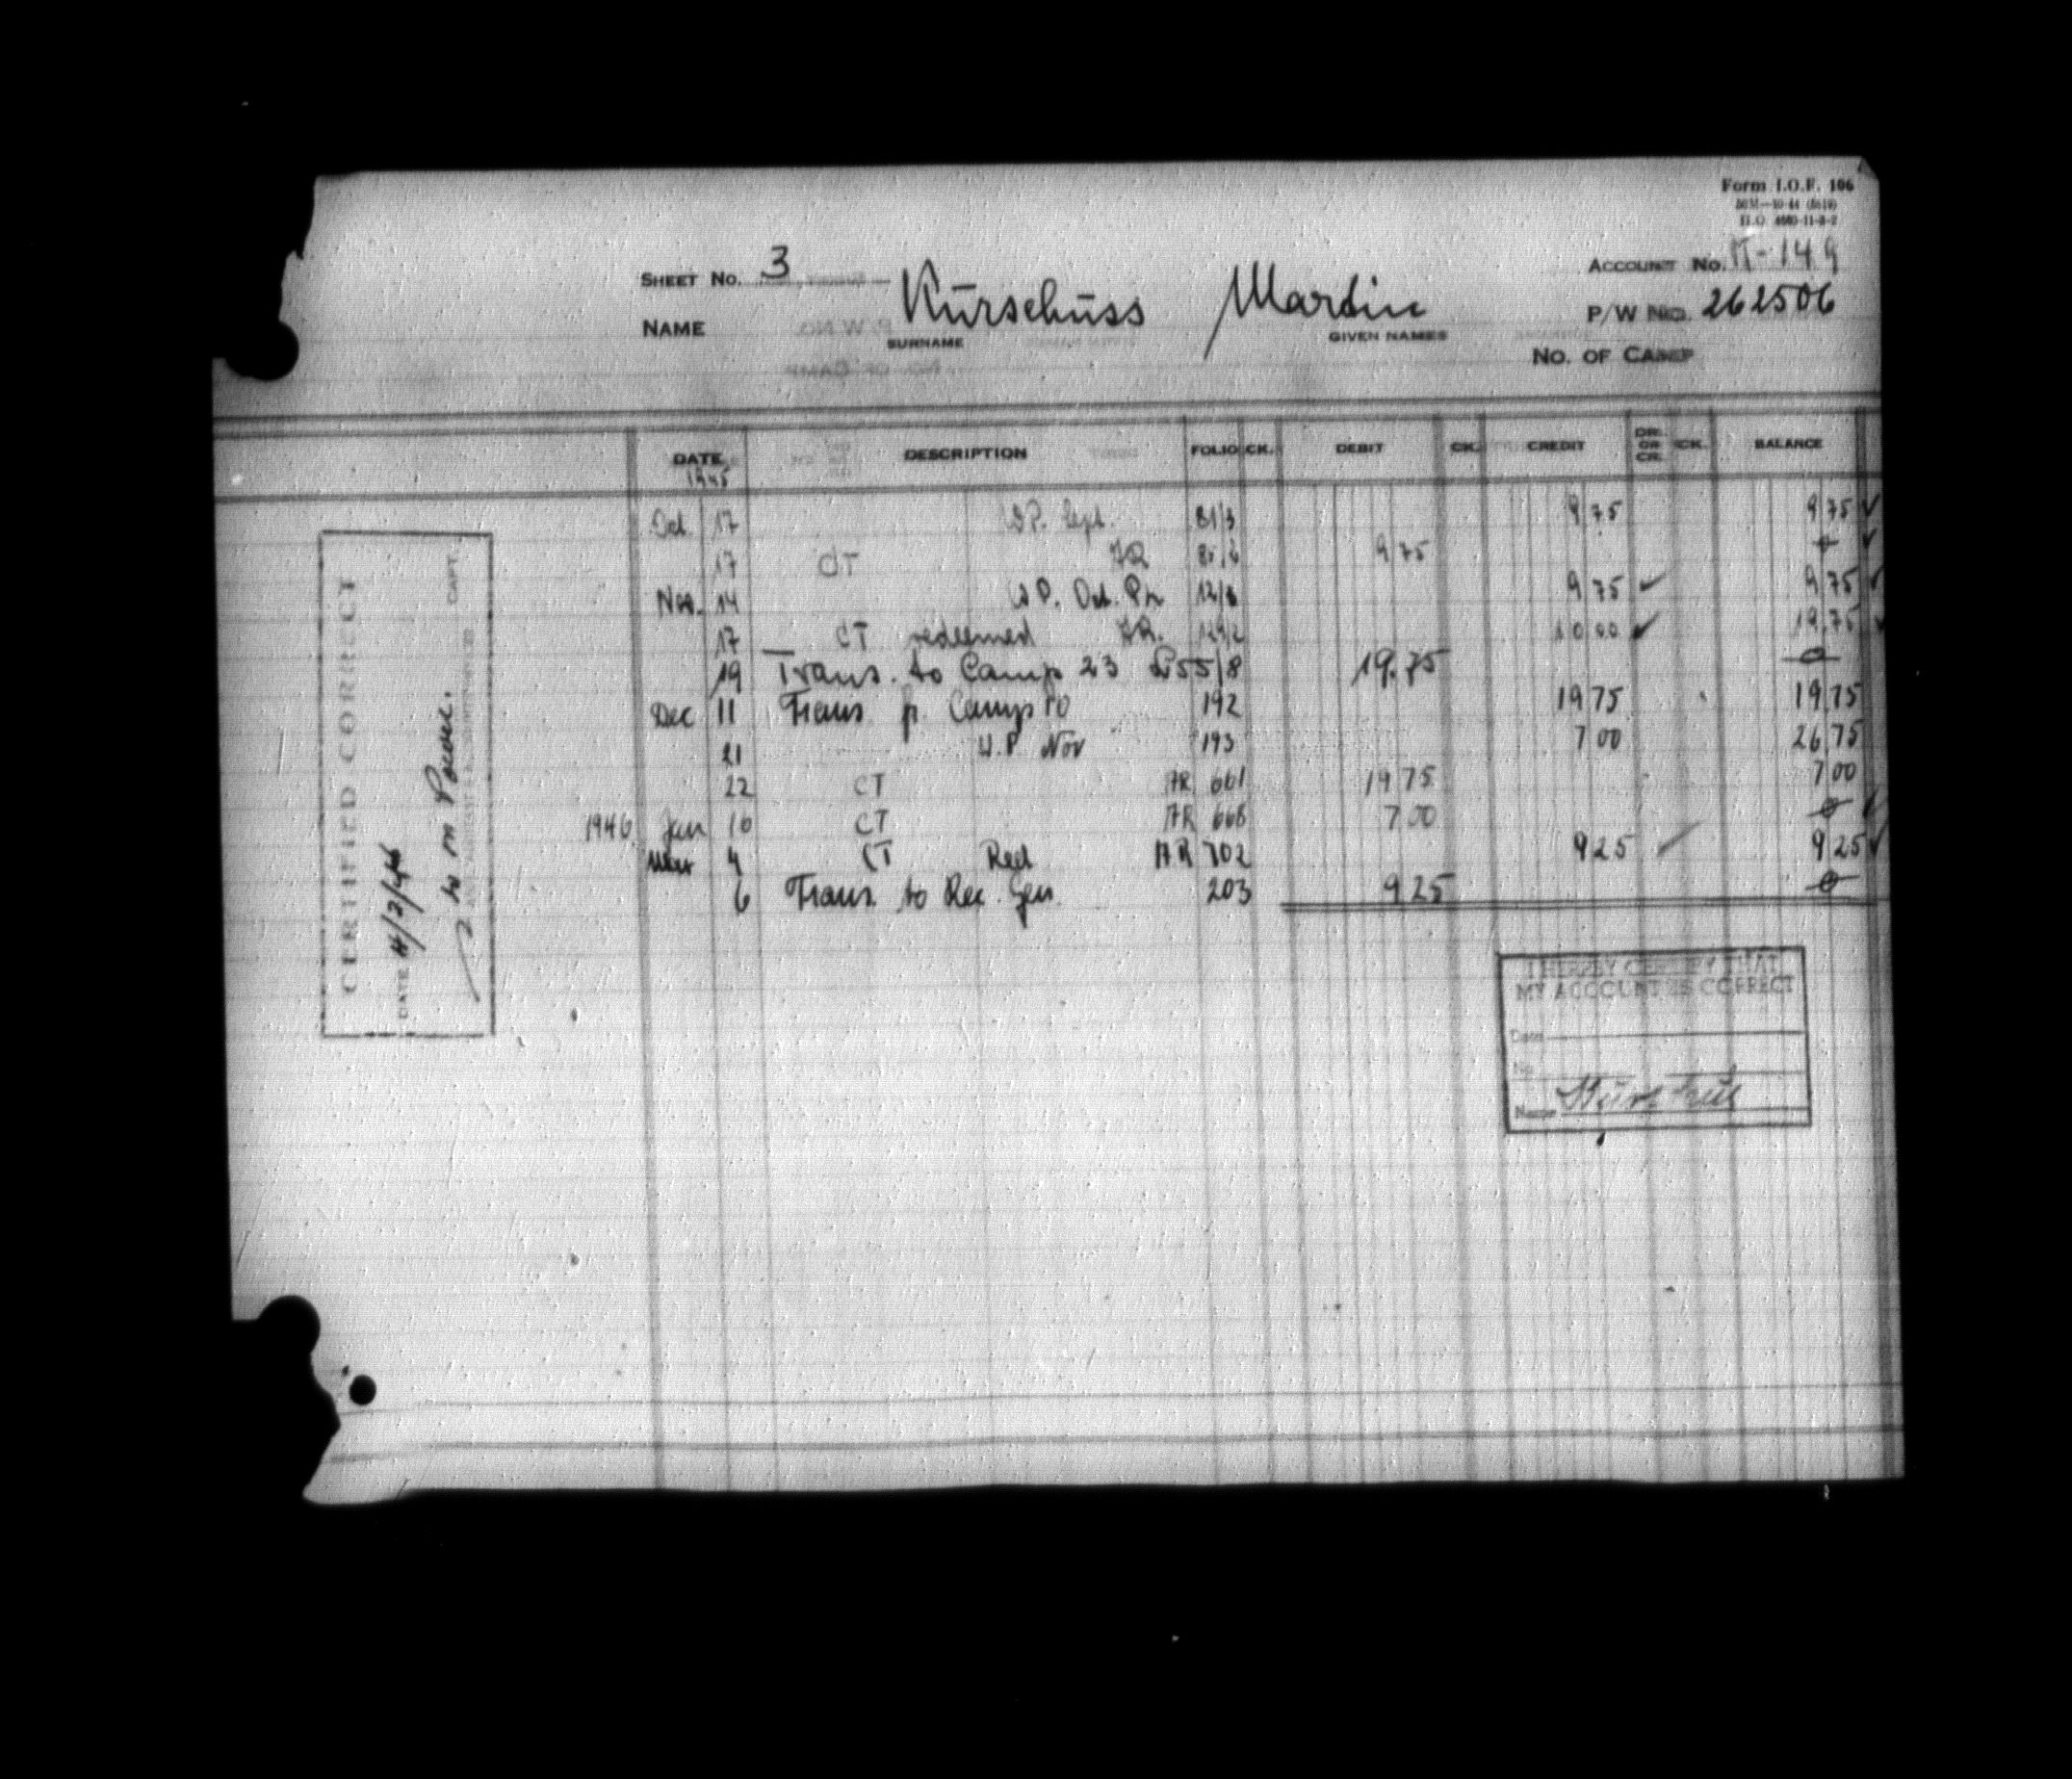 Form I.O.F. 106
SHEET No. 3
ACCOUNT No. K-149
NAME Kurschuss Martin
SURNAME GIVEN NAMES
P/W No. 262506
No. OF CAMP
DATE DESCRIPTION FOLIO CK. DEBIT CK. CREDIT DR. OR CR. CK. BALANCE
1945
Oct. 17 W.P. Sept. 81/3 9 75 9 75
17 CT AR 9 75
Nov. 14 W.P. Oct. 9 75 9 75
17 CT redeemed AR. 10 00 19.75
19 Trans. to Camp 23 55/8 19.75 0
Dec 11 Trans fr. Camp 192 19 75 19 75
21 W.P Nov 193 7 00 26 75
22 CT AR 661 19 75 7 00
1946 Jan 10 CT AR 668 7 00 0
Mar 4 CT Red AR 702 9 25 9 25
6 Trans. to Rec. Gen. 203 9 25 0
CERTIFIED CORRECT
DATE
CAPT.
I HEREBY CERTIFY THAT
MY ACCOUNT IS CORRECT
Date
No
Name